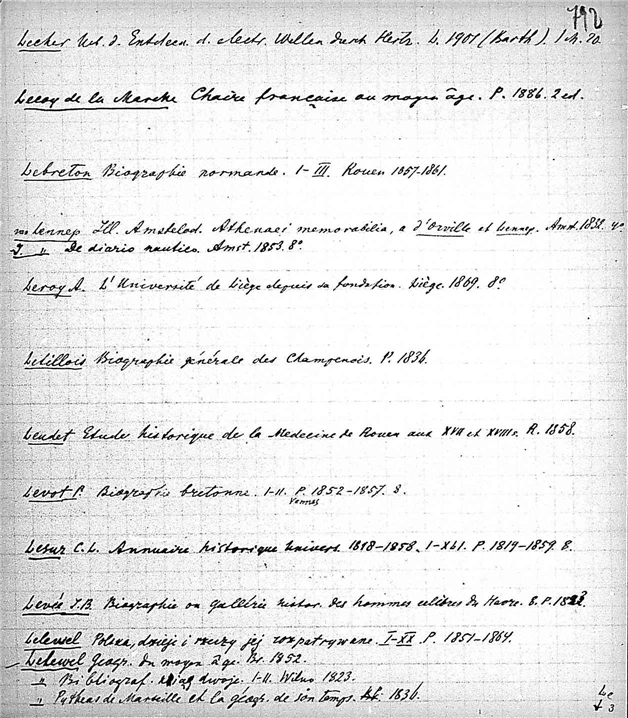 792
Lecher Üb. d. Entdeck. d. electr. Wellen durch Hertz. L. 1901 (Barth). 1 M. 20.
Lecoy de la Marche Chaire française au moyen âge. P. 1886. 2 ed.
Lebreton Biographie normande. I-III. Rouen 1857-1861.
van Lennep Ill. Amstelod. Athenaei memorabilia, a d'Orville et Lennep. Amst. 1832. 4º
J. " De diario nautico. Amst. 1853. 8º
Leroy A. L'Université de Liège depuis sa fondation. Liège. 1869. 8º
Letillois Biographie générale des Champenois. P. 1836.
Leudet Etude historique de la Medecine de Rouen aux XVII et XVIII s. R. 1858.
Levot P. Biographie bretonne. I-II. P. 1852-1857. 8.
Vannes
Lesur C. L. Annuaire historique univers. 1818-1858. I-XLI. P. 1819-1859. 8.
Levée J.B. Biographie ou gallérie histor. des hommes celèbres du Havre. 8. P.
Lelewel Polska, dzieje i rzeczy jej rozpatrywane. I-XX. P. 1851-1864.
Lelewel Geogr. du moyen âge. Br. 1852.
" Bibliograf. ksiąg dwoje. I-II. Wilno 1823.
" Pytheas de Marseille et la géogr. de son temps. 1836.
Le
3